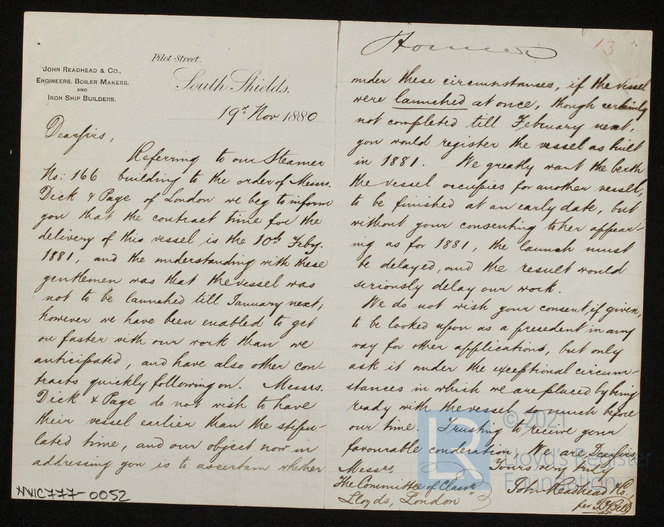 JOHN READHEAD & CO.,
ENGINEERS, BOILER MAKERS,
AND
IRON SHIP BUILDERS.
Pilot Street,
South Shields,
19th Nov 1880
Dear Sirs,
Referring to our Steamer
No: 166 building to the order of Messrs.
Dick & Page of London we beg to inform
you that the contract time for the
delivery of this vessel is the 10th Feby.
1881, and the understanding with these
gentlemen was that the vessel was
not to be launched till January next;
however we have been enabled to get
on faster with our work than we
anticipated, and have also other con
tracts quickly following on. Messrs.
Dick & Page do not wish to have
their vessel earlier than the stipu-
lated time, and our object now in
addressing you is to ascertain whether
NWC777-0052
13
under these circumstances, if the vessel
were launched at once, though certainly
not completed till February next,
you would register the vessel as built
in 1881. We greatly want the berth
the vessel occupies for another vessel,
to be finished at an early date, but
without your consenting to her appear-
ing as for 1881, the launch must
be delayed, and the result would
seriously delay our work.
We do not wish your consent, if given,
to be looked upon as a president in any
way for other applications, but only
ask it under the exceptional circum-
stances in which we are placed by being
ready with the vessel so much before
our time. Trusting to receive your
favourable consideration. We are Dear Sirs,
Messrs. Yours very truly
The Committee of Lloyds, London
John Readhead & Co.
per
LR
© 2021
Lloyd's Register
Foundation